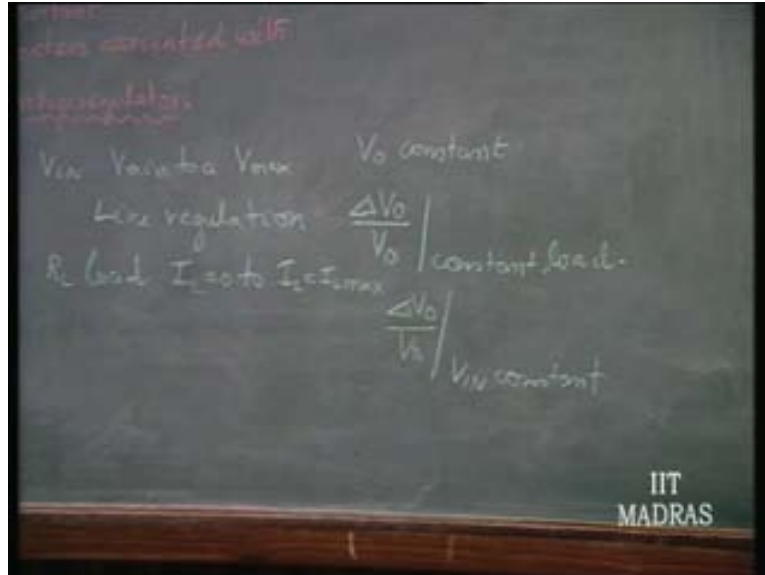 associated with
V_IN V_min to a V_max V_o constant
Line regulation ΔV_o/V_o | constant load.
R_L load I_L=0 to I_L=I_Lmax
ΔV_o/V_o | V_IN constant
IIT
MADRAS